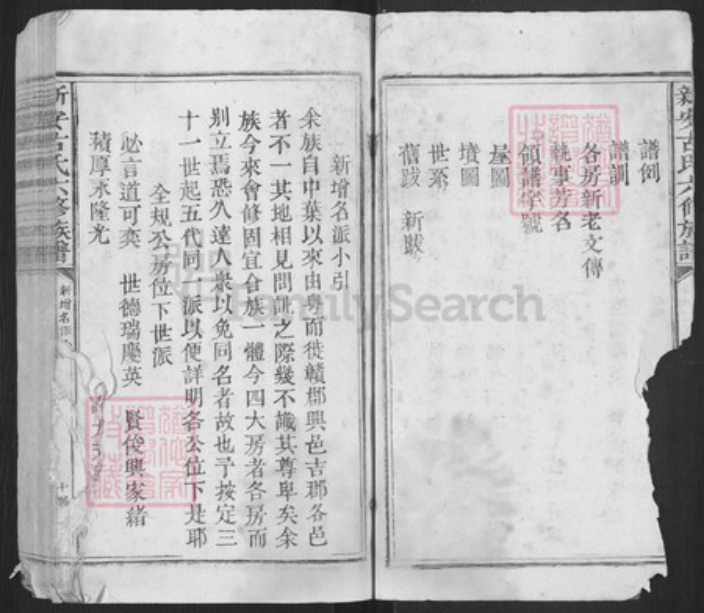 新安古氏六修族譜
譜例
譜訓
各房新老文傳
執事芳名
領譜字號
屋圖
墳圖
世系
舊跋 新跋
新增名派小引
余族自中葉以來由粵而徙贛郡興邑吉郡各邑
者不一其地相見問訊之際幾不識其尊卑矣余
族今來會修固宜合族一體今四大房者各房而
別立焉恐久遠人衆以免同名者故也予按定三
十一世起五代同一派以便詳明各公位下是耶
全規公房位下世派
必言道可奕 世德瑞慶英 賢俊興家緒
積厚永隆光
新安古氏六修族譜
新增名派
FamilySearch